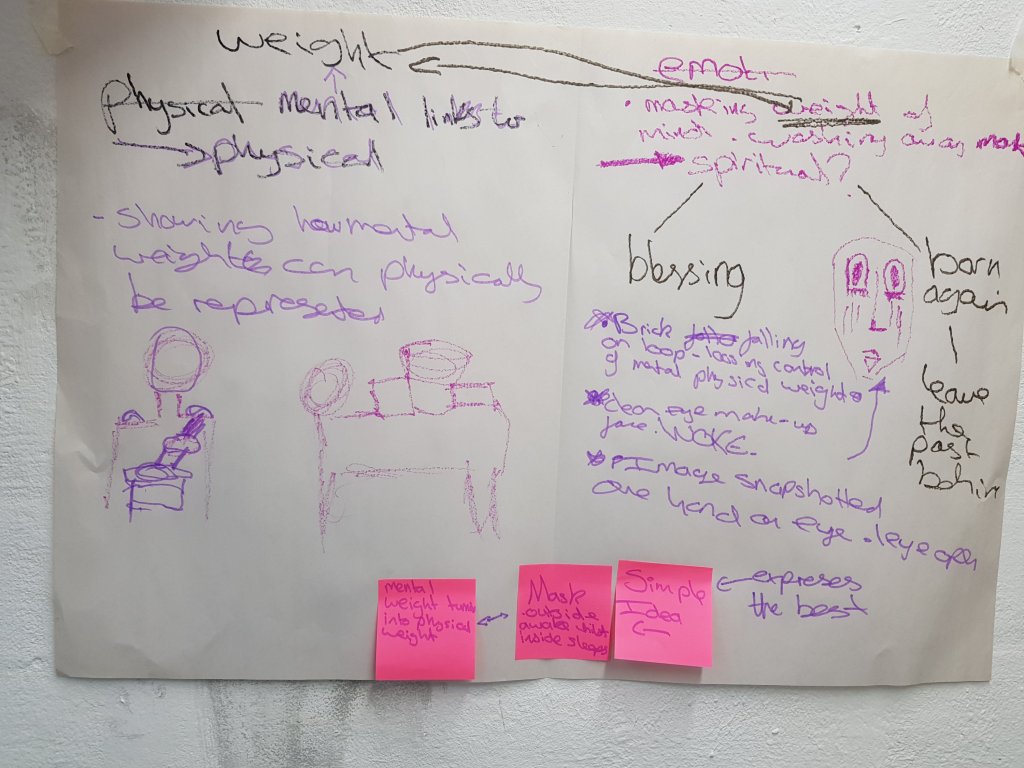 weight
physical mental links to
physical
- showing how mental
weights can physically
be represeted
emoti
. masking weight of
mind. . washing away mask
spiritual?
blessing
born
again
leave
the
past
behin
Brick falling
on loop - loosing control
of metal physical weight
clean eye make-up
face. WOKE.
Image snapshotted
one hand on eye . 1 eye open
mental
weight turns
into physical
weight
Mask
. outside
awake whilst
inside sleeps
Simple
Idea
expreses
the best